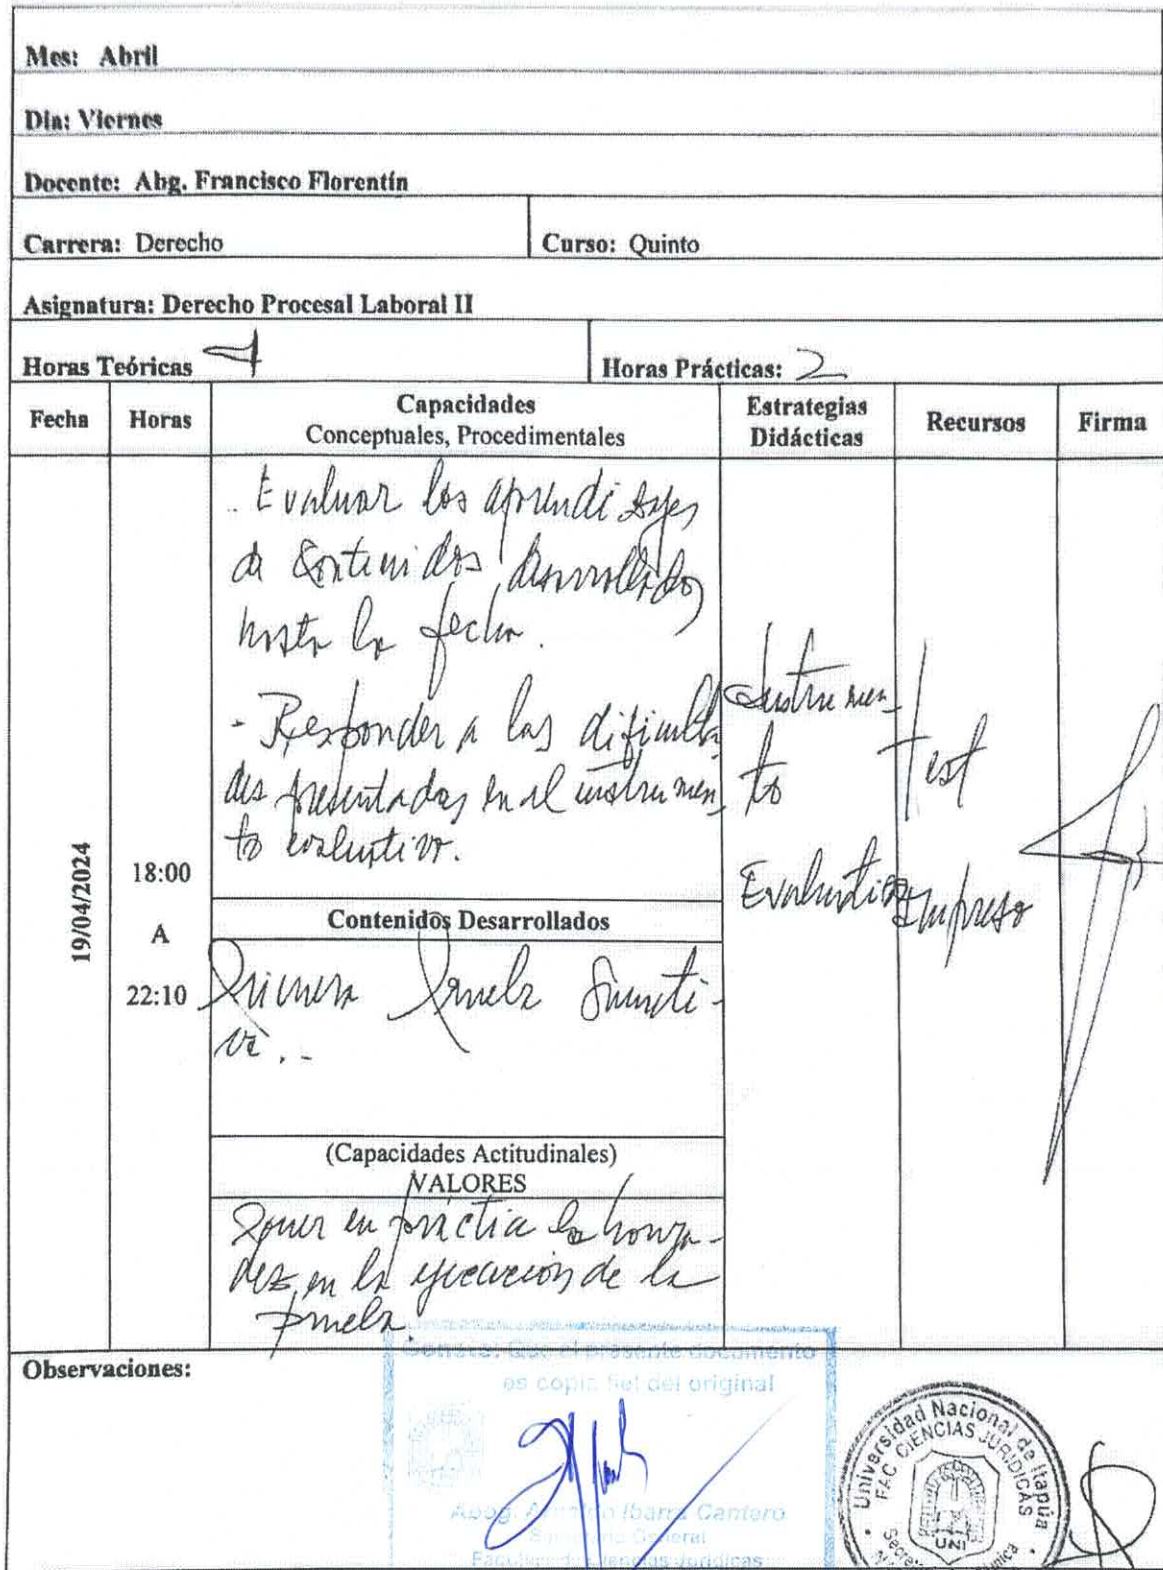 Mes: Abril
Día: Viernes
Docente: Abg. Francisco Florentín
Carrera: Derecho
Curso: Quinto
Asignatura: Derecho Procesal Laboral II
Horas Teóricas 4
Horas Prácticas: 2
Fecha
Horas
Capacidades
Conceptuales, Procedimentales
Estrategias
Didácticas
Recursos
Firma
19/04/2024
18:00
A
22:10
- Evaluar los aprendizajes
de contenidos desarrollados
hasta la fecha.
- Responder a las dificulta
des presentadas en el instrumen
to evaluativo.
Contenidos Desarrollados
Primera Prueba Sumati-
va.-
(Capacidades Actitudinales)
VALORES
Poner en práctica la honra-
dez en la ejecución de la
prueba.
Instrumen_
to
Evaluativo
Test
Impreso
Observaciones:
Consta: Que el presente documento
es copia fiel del original
Abog. Ibarra Cantero
General
Ciencias Jurídicas
Universidad Nacional de Itapúa
FAC. CIENCIAS JURIDICAS
UNI